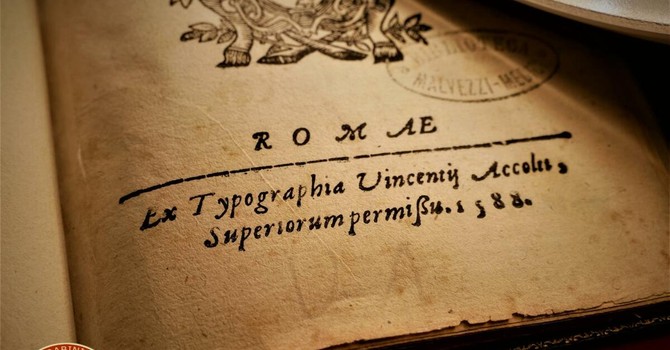 BIBLIOTECA
MALVEZZI-ME
ROMAE
Ex Typographia Vincentij Accolti,
Superiorum permißu. 1588.